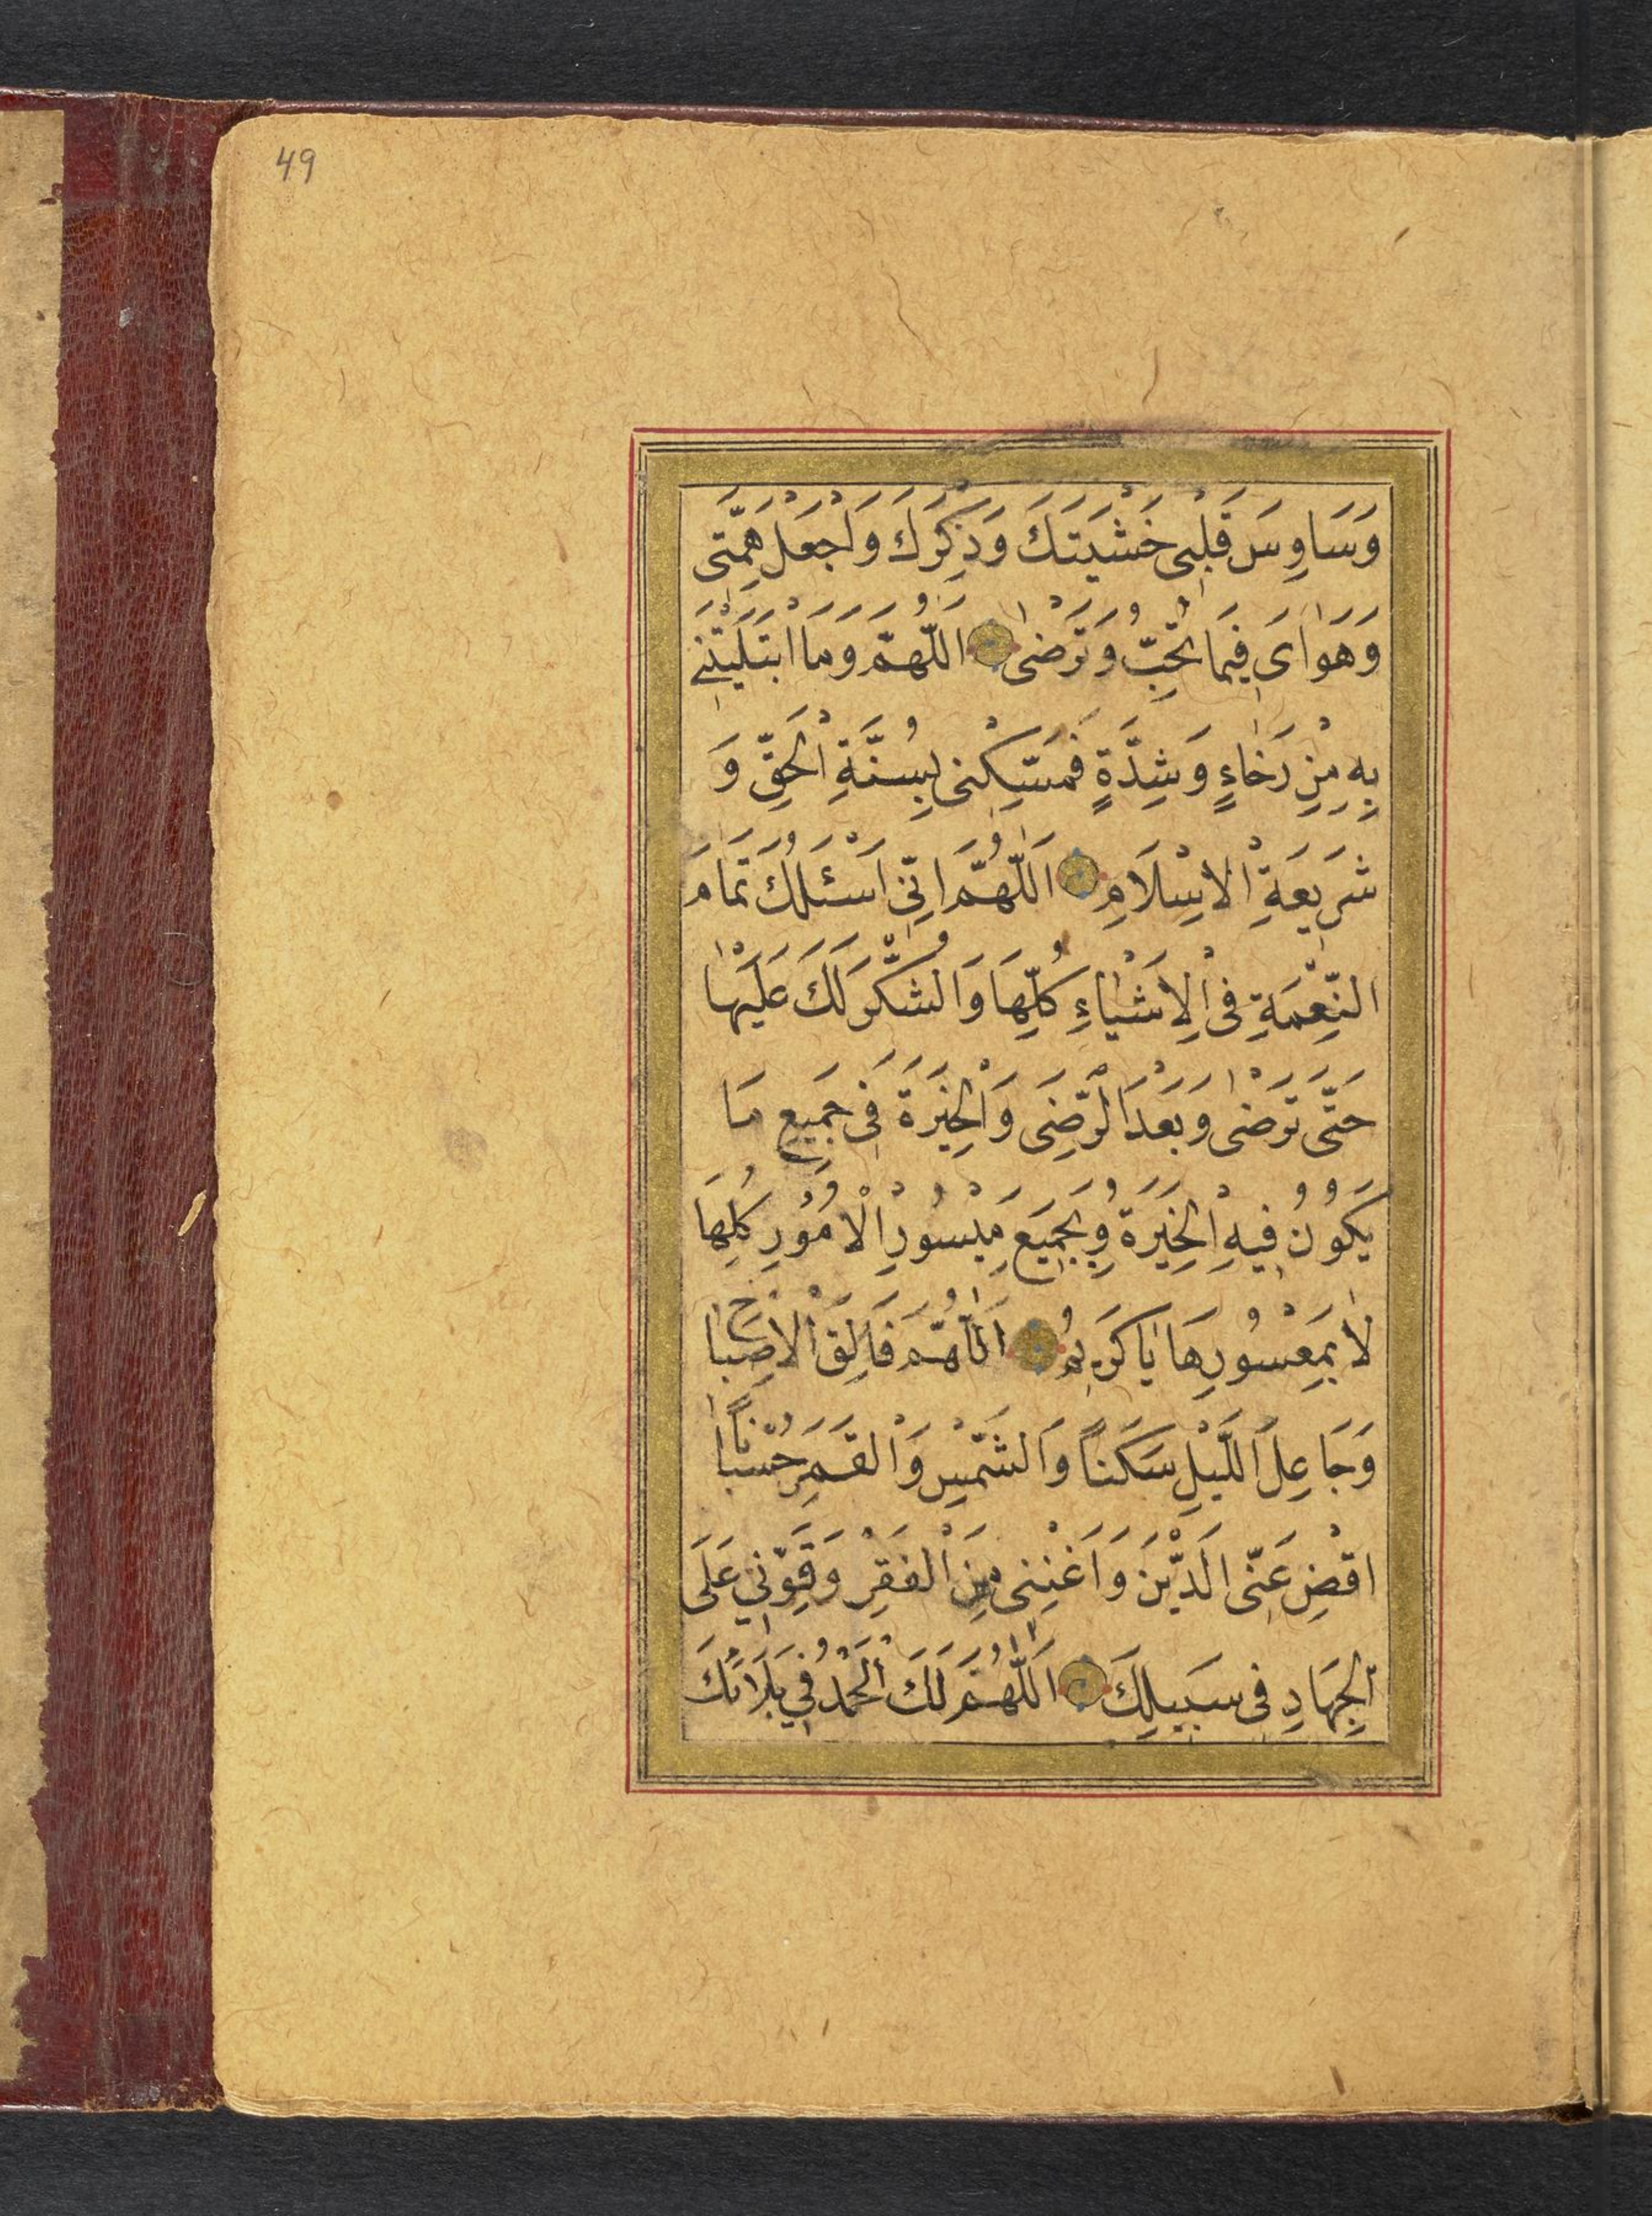 49
وَسَاوِسَ قَلْبِى خَشْيَتَكَ وَذِكْرَكَ وَاجْعَلْ هِمَّتِى
وَهَوَاىَ فِيمَا تُحِبُّ وَتَرْضٰى اَللّٰهُمَّ وَمَا ابْتَلَيْتَنِى
بِهِ مِنْ رَخَاءٍ وَشِدَّةٍ فَمَسِّكْنِى بِسُنَّةِ الْحَقِّ وَ
شَرِيعَةِ الْاِسْلَامِ اَللّٰهُمَّ اِنِّى اَسْئَلُكَ تَمَامَ
النِّعْمَةِ فِى الْاَشْيَاءِ كُلِّهَا وَالشُّكْرَ لَكَ عَلَيْهَا
حَتَّى تَرْضٰى وَبَعْدَ الرِّضَى وَالْخِيَرَةَ فِى جَمِيعِ مَا
يَكُونُ فِيهِ الْخِيَرَةُ وَبِجَمِيعِ مَيْسُورِ الْاُمُورِ كُلِّهَا
لَا بِمَعْسُورِهَا يَا كَرِيمُ اَللّٰهُمَّ فَالِقَ الْاِصْبَاحِ
وَجَاعِلَ اللَّيْلِ سَكَناً وَالشَّمْسِ وَالْقَمَرِ حُسْبَاناً
اقْضِ عَنِّى الدَّيْنَ وَاَغْنِنِى مِنَ الْفَقْرِ وَقَوِّنِي عَلَى
الْجِهَادِ فِى سَبِيلِكَ اَللّٰهُمَّ لَكَ الْحَمْدُ فِي بَلَائِكَ